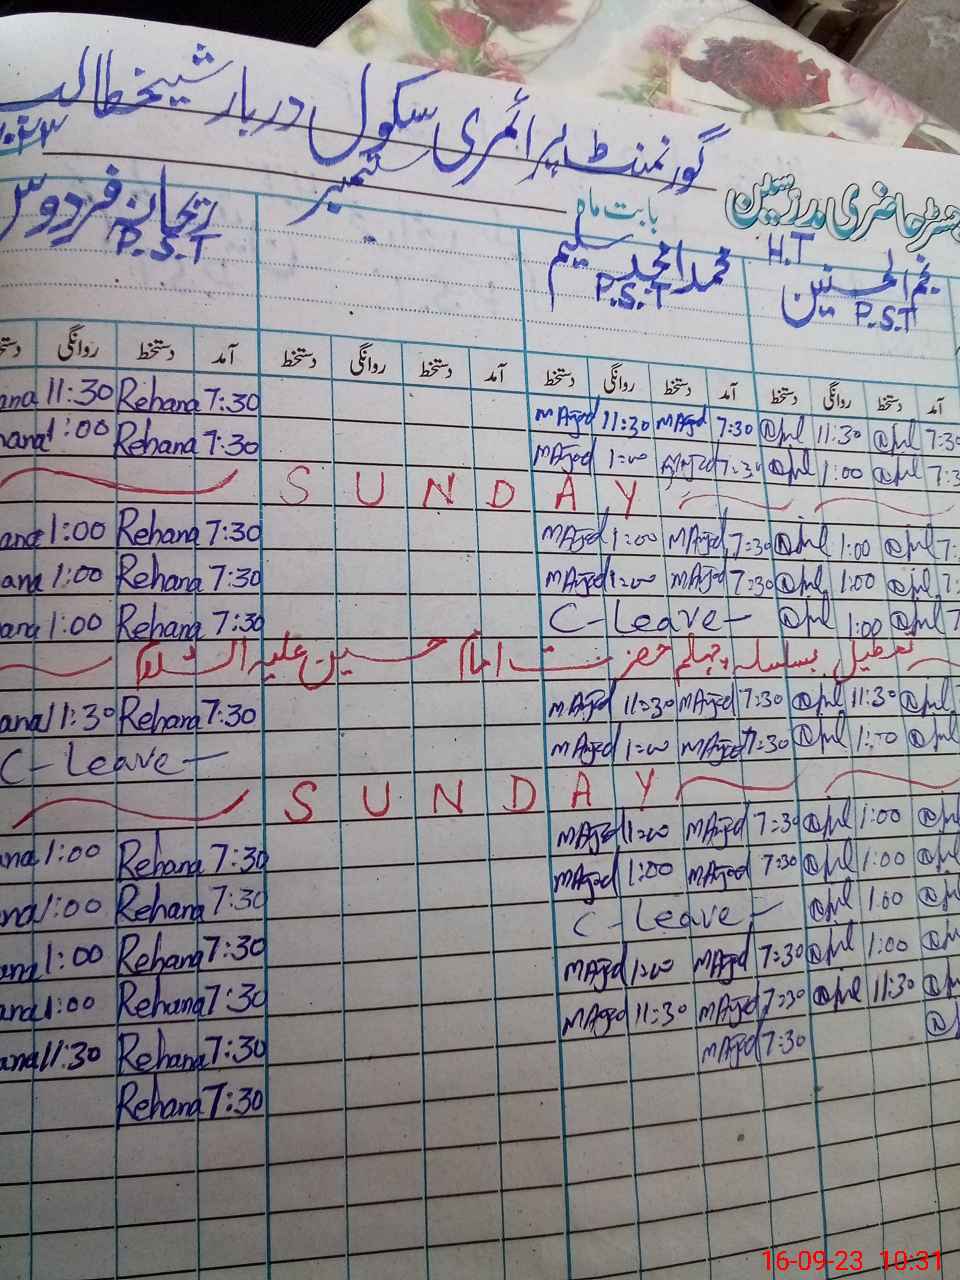 گورنمنٹ پرائمری سکول دربار شیخ طالب
حاضری مدرسین بابت ماہ ستمبر
نجم الحسنین H.T محمد امجد سلیم ریحانہ فردوس
P.S.T P.S.T P.S.T
آمد دستخط روانگی دستخط آمد دستخط روانگی دستخط آمد دستخط روانگی دستخط آمد دستخط روانگی
11:30 Rehana 7:30 MAjed 11:30 MAjed 7:30 11:30
1:00 Rehana 7:30 MAjed 1:00 MAjed 7:30 1:00
SUNDAY
1:00 Rehana 7:30 MAjed 1:00 MAjed 7:30 1:00
1:00 Rehana 7:30 MAjed 1:00 MAjed 7:30 1:00
1:00 Rehana 7:30 C-Leave- 1:00
تعطیل بسلسلہ چہلم حضرت امام حسین علیہ السلام
11:30 Rehana 7:30 MAjed 11:30 MAjed 7:30 11:30
C-Leave- MAjed 1:00 MAjed 7:30 1:00
SUNDAY
1:00 Rehana 7:30 MAjed 1:00 MAjed 7:30 1:00
1:00 Rehana 7:30 MAjed 1:00 MAjed 7:30 1:00
1:00 Rehana 7:30 C-Leave- 1:00
1:00 Rehana 7:30 MAjed 1:00 MAjed 7:30 1:00
11:30 Rehana 7:30 MAjed 11:30 MAjed 7:30 11:30
Rehana 7:30 MAjed 7:30
16-09-23 10:31